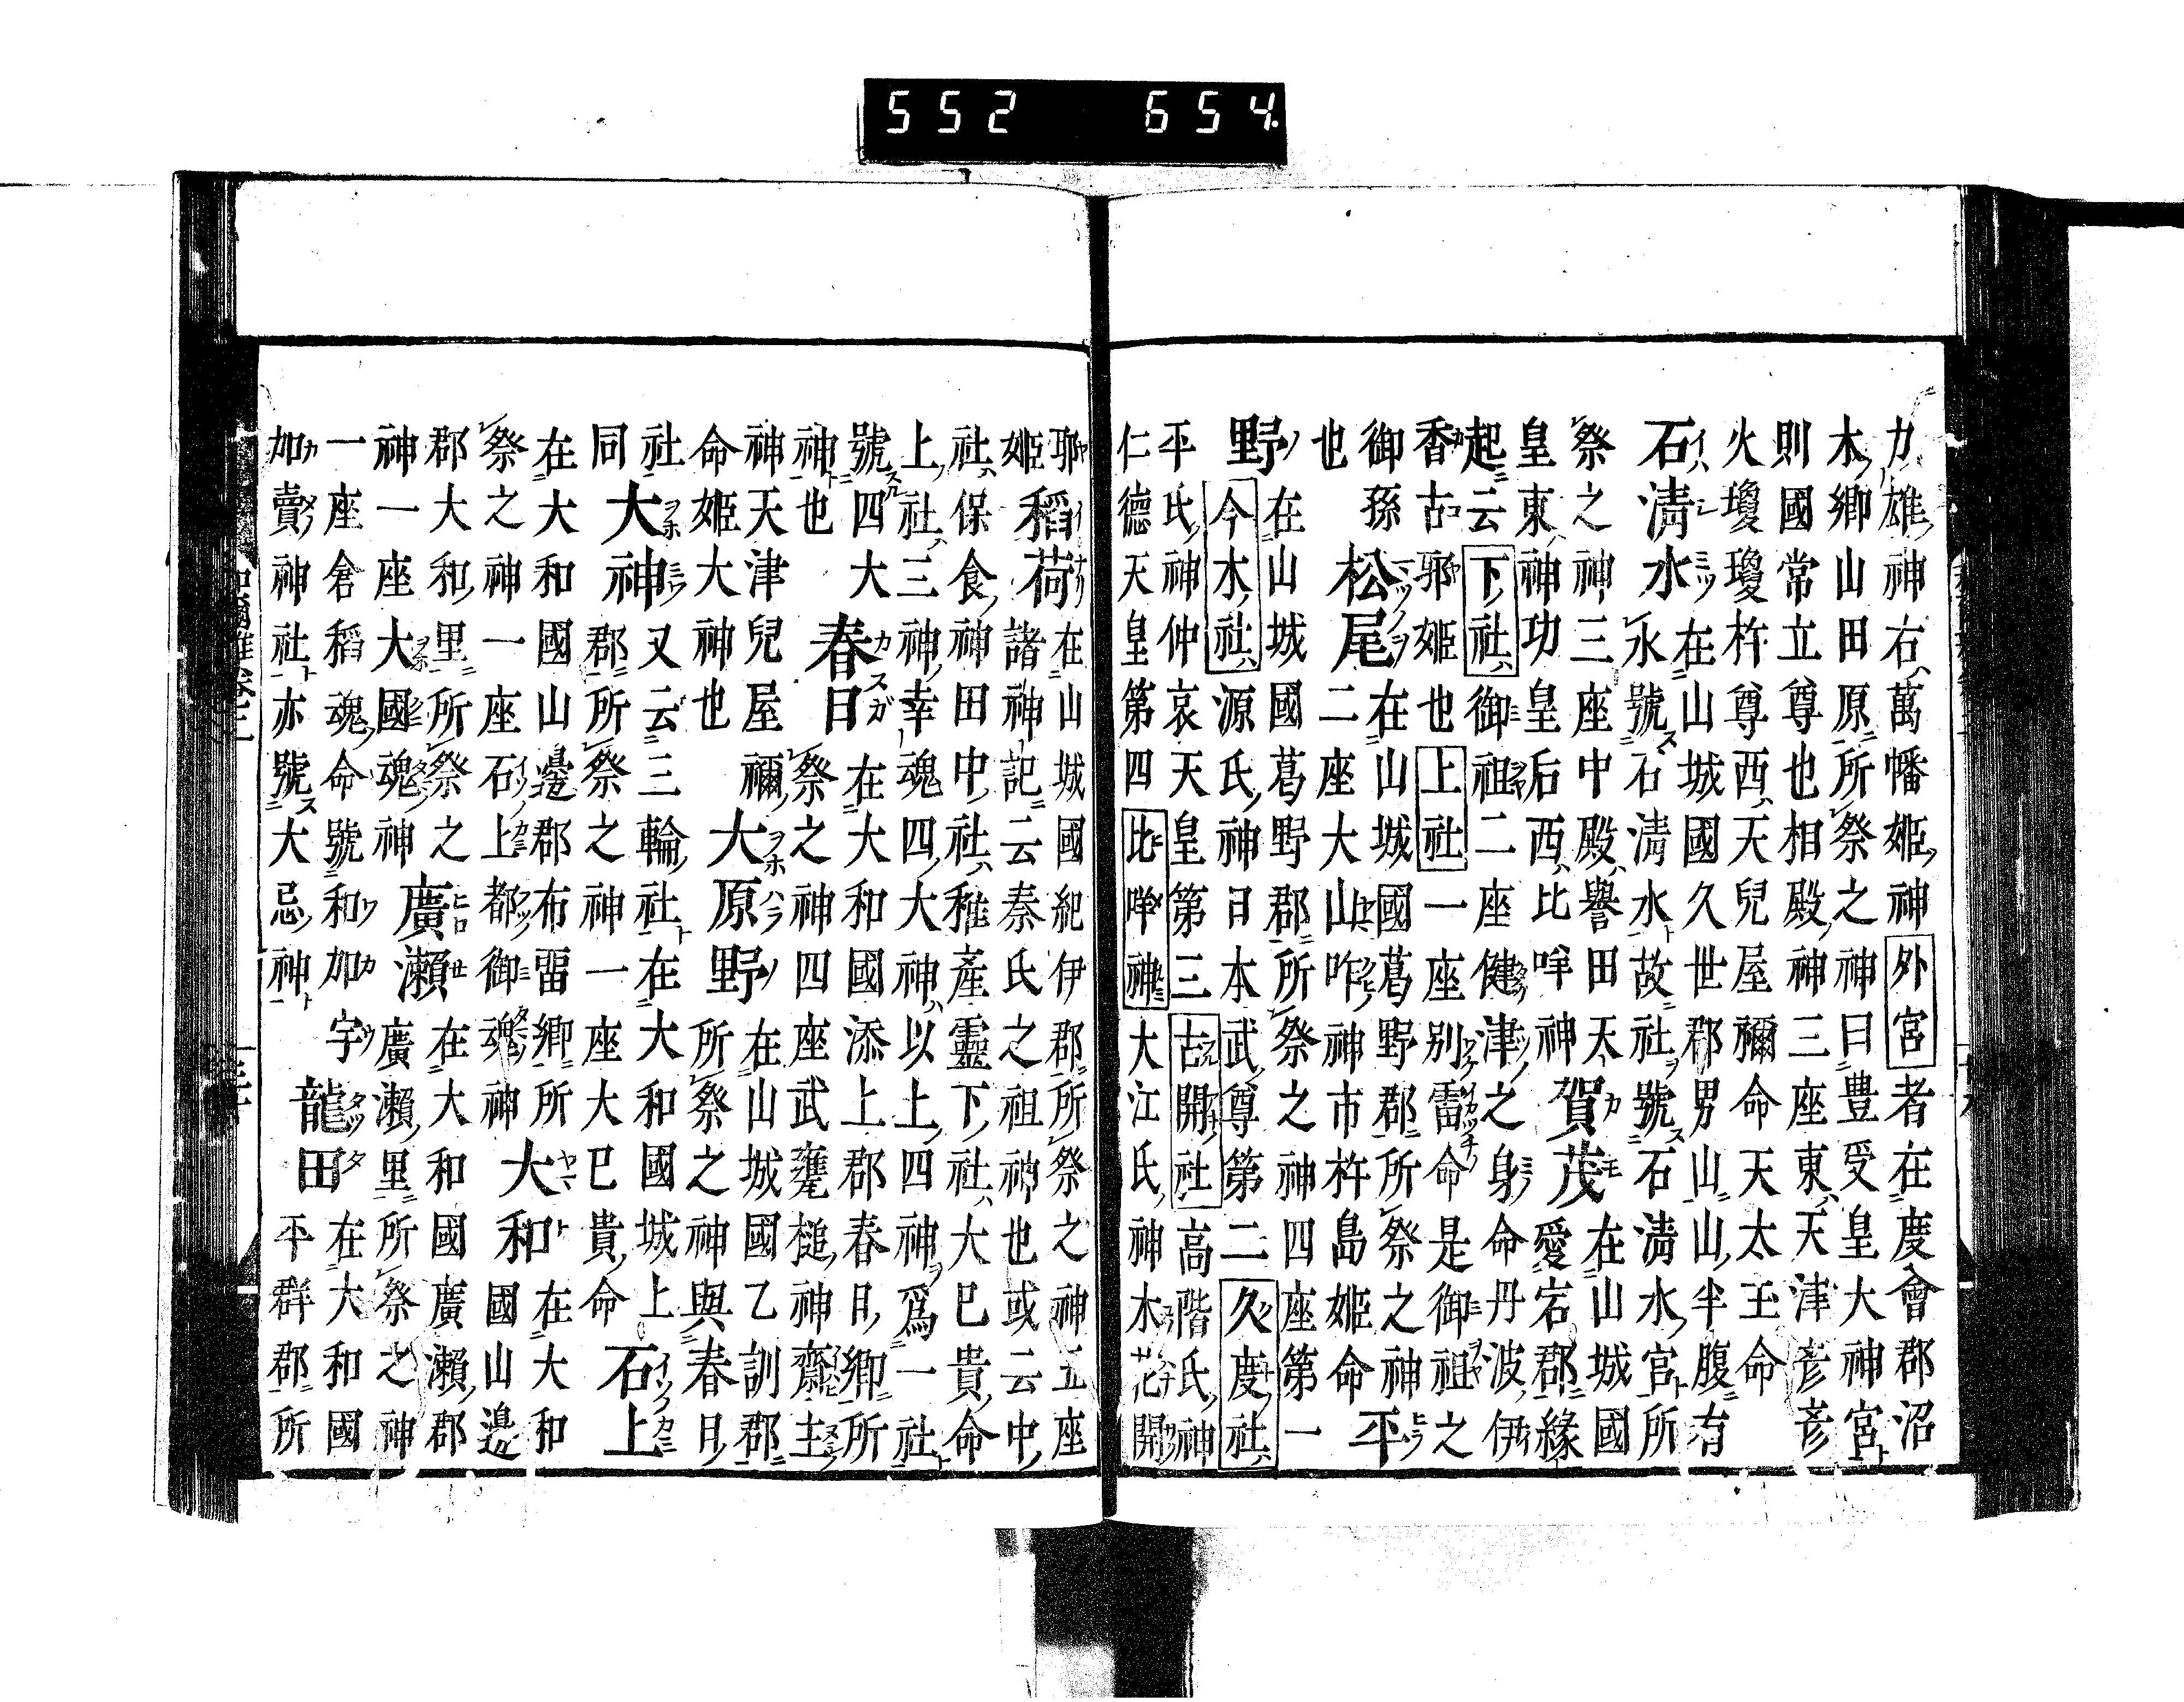 力雄神右萬幡姬神外宮者在度會郡沼
木鄉山田原所祭之神曰豊受皇大神宮
則國常立尊也相殿神三座東天津彥彥
火瓊瓊杵尊西天兒屋禰命天太玉命
石清水
在山城國久世郡男山山半腹有
永號石清水故社號石清水宮所
祭之神三座中殿譽田天
皇東神功皇后西比咩神
賀茂
在山城國
愛宕郡緣
起云下社御祖二座健津之身命丹波伊
香古耶姬也上社一座別雷命是御祖之
御孫
也
松尾
在山城國葛野郡所祭之神
二座大山咋神市杵島姬命
平
野
在山城國葛野郡所祭之神四座第一
今木社源氏神日本武尊第二久度社
平氏神仲哀天皇第三古開社高階氏神
仁德天皇第四比咩神大江氏神木花開
耶
姬
稻荷
在山城國紀伊郡所祭之神五座
諸神記云秦氏之祖神也或云中
社保食神田中社稚產靈下社大巳貴命
上社三神幸魂四大神以上四神爲一社
號四大
神也
春日
在大和國添上郡春日鄉所
祭之神四座武甕槌神齋主
神天津兒屋禰
命姬大神也
大原野
在山城國乙訓郡
所祭之神與春日
社
同
大神
又云三輪社在大和國城上
郡所祭之神一座大巳貴命
石上
在大和國山邊郡布留鄉所
祭之神一座石上都御魂神
大和
在大和
國山邊
郡大和里所祭之
神一座大國魂神
廣瀨
在大和國廣瀨郡
廣瀨里所祭之神
一座倉稻魂命號和加宇
加賣神社亦號大忌神
龍田
在大和國
平群郡所
552 654